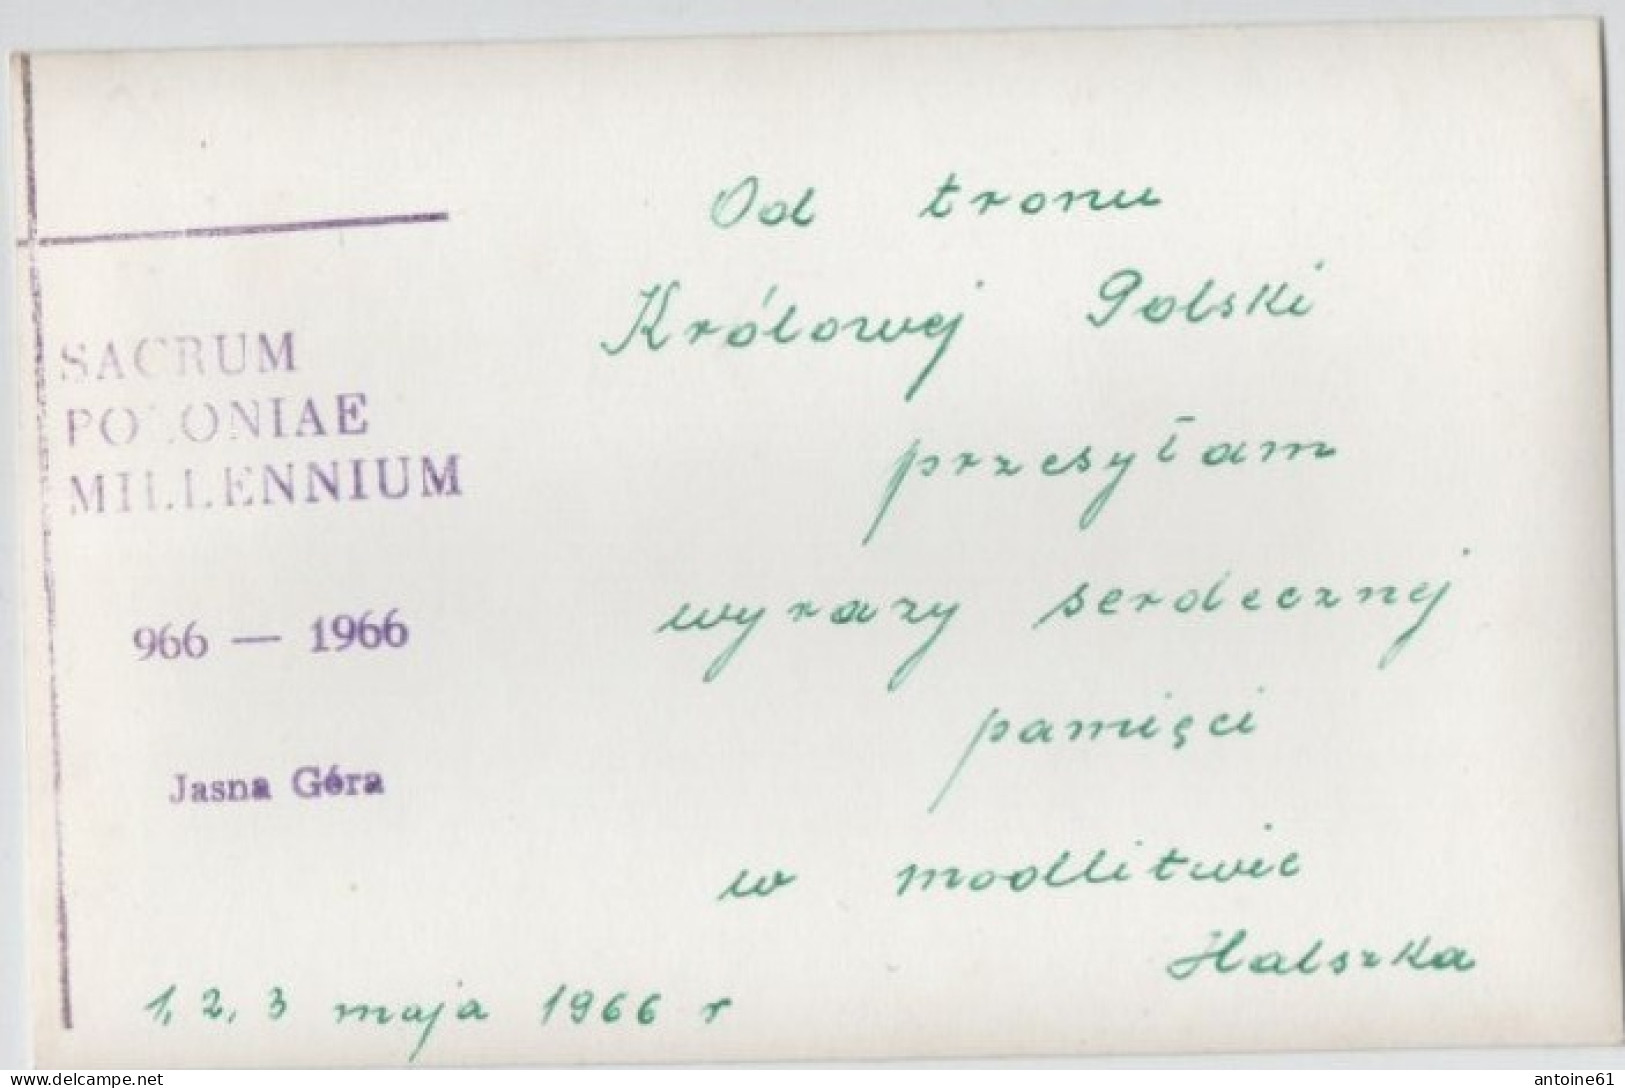 SACRUM
POLONIAE
MILLENNIUM
966 — 1966
Jasna Góra
Od tronu
Królowej Polski
przesyłam
wyrazy serdecznej
pamięci
w modlitwie
Halszka
1, 2, 3 maja 1966 r
antoine61